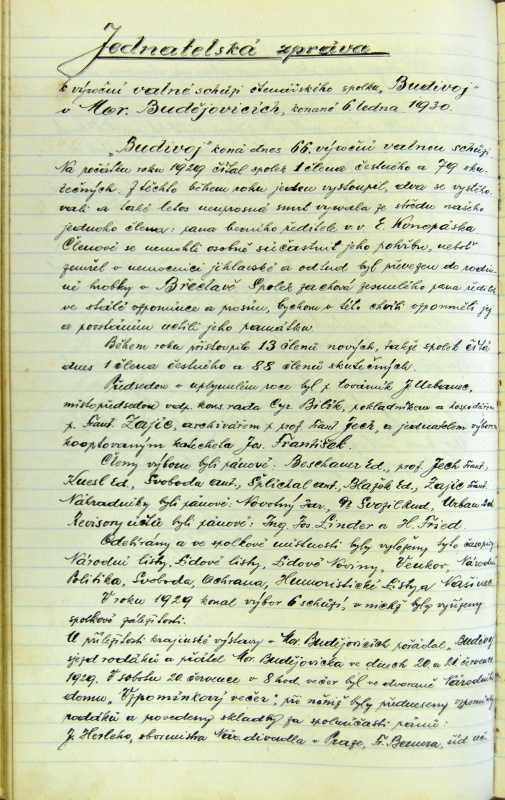 Jednatelská zpráva
k výroční valné schůzi čtenářského spolku „Budivoj"
v Mor. Budějovicích, konané 6. ledna 1930.
„Budivoj" koná dnes 66. výroční valnou schůzi.
Na počátku roku 1929 čítal spolek 1 člena čestného a 79 sku-
tečných. Z těchto během roku jeden vystoupil, dva se vystěho-
vali a také letos neúprosná smrt vyrvala ze středu našeho
jednoho člena: pana berního ředitele v.v. E. Konopáska
Členové se nemohli osobně súčastnit jeho pohřbu, neboť
zemřel v nemocnici jihlavské a odtud byl převezen do rodin-
né hrobky v Břeclavě. Spolek zachová zesnulého pana ředite
ve stálé vzpomínce a prosím, bychom v této chvíli vzpomněli jej
a povstáním uctili jeho památku.
Během roku přistoupilo 13 členů nových, takže spolek čítá
dnes 1 člena čestného a 88 členů skutečných.
Předsedou v uplynulém roce byl p. továrník J. Urbanec,
místopředsedou vdp. kons. rada Cyr. Bílik, pokladníkem a hospodářem
p. Frant. Zajíc, archivářem p. prof. Frant. Jech, a jednatelem výborem
kooptovaným katecheta Jar. František.
Členy výboru byli pánové: Beschauer Ed., prof. Jech Frant.,
Kuesl Ed., Svoboda Ant., Šplíchal Ant., Blažek Ed., Zajíc Frant.
Náhradníky byli pánové: Novotný Jar., Svozil Rud., Urban
Revisory účtů byli pánové: Ing. Jos. Linder a H. Fried.
Odebírány a ve spolkové místnosti byly vyloženy tyto časopisy
Národní listy, Lidové listy, Lidové Noviny, Venkov, Národní
Politika, Svoboda, Ochrana, Humoristické Listy a Našinec.
V roku 1929 konal výbor 6 schůzí, v nichž byly vyřízeny
spolkové záležitosti.
U příležitosti krajinské výstavy v Mor. Budějovicích pořádal „Budivoj
sjezd rodáků a přátel Mor. Budějovicka ve dnech 20 a 21 července
1929. V sobotu 20 července v 8 hod. večer byl ve dvoraně Národního
domu „Vzpomínkový večer", při němž byly předneseny vzpomínky
rodáků a provedeny skladby za spoluúčasti pánů:
J. Herleho, sbormistra Nár. divadla v Praze, Fr. Bernera,